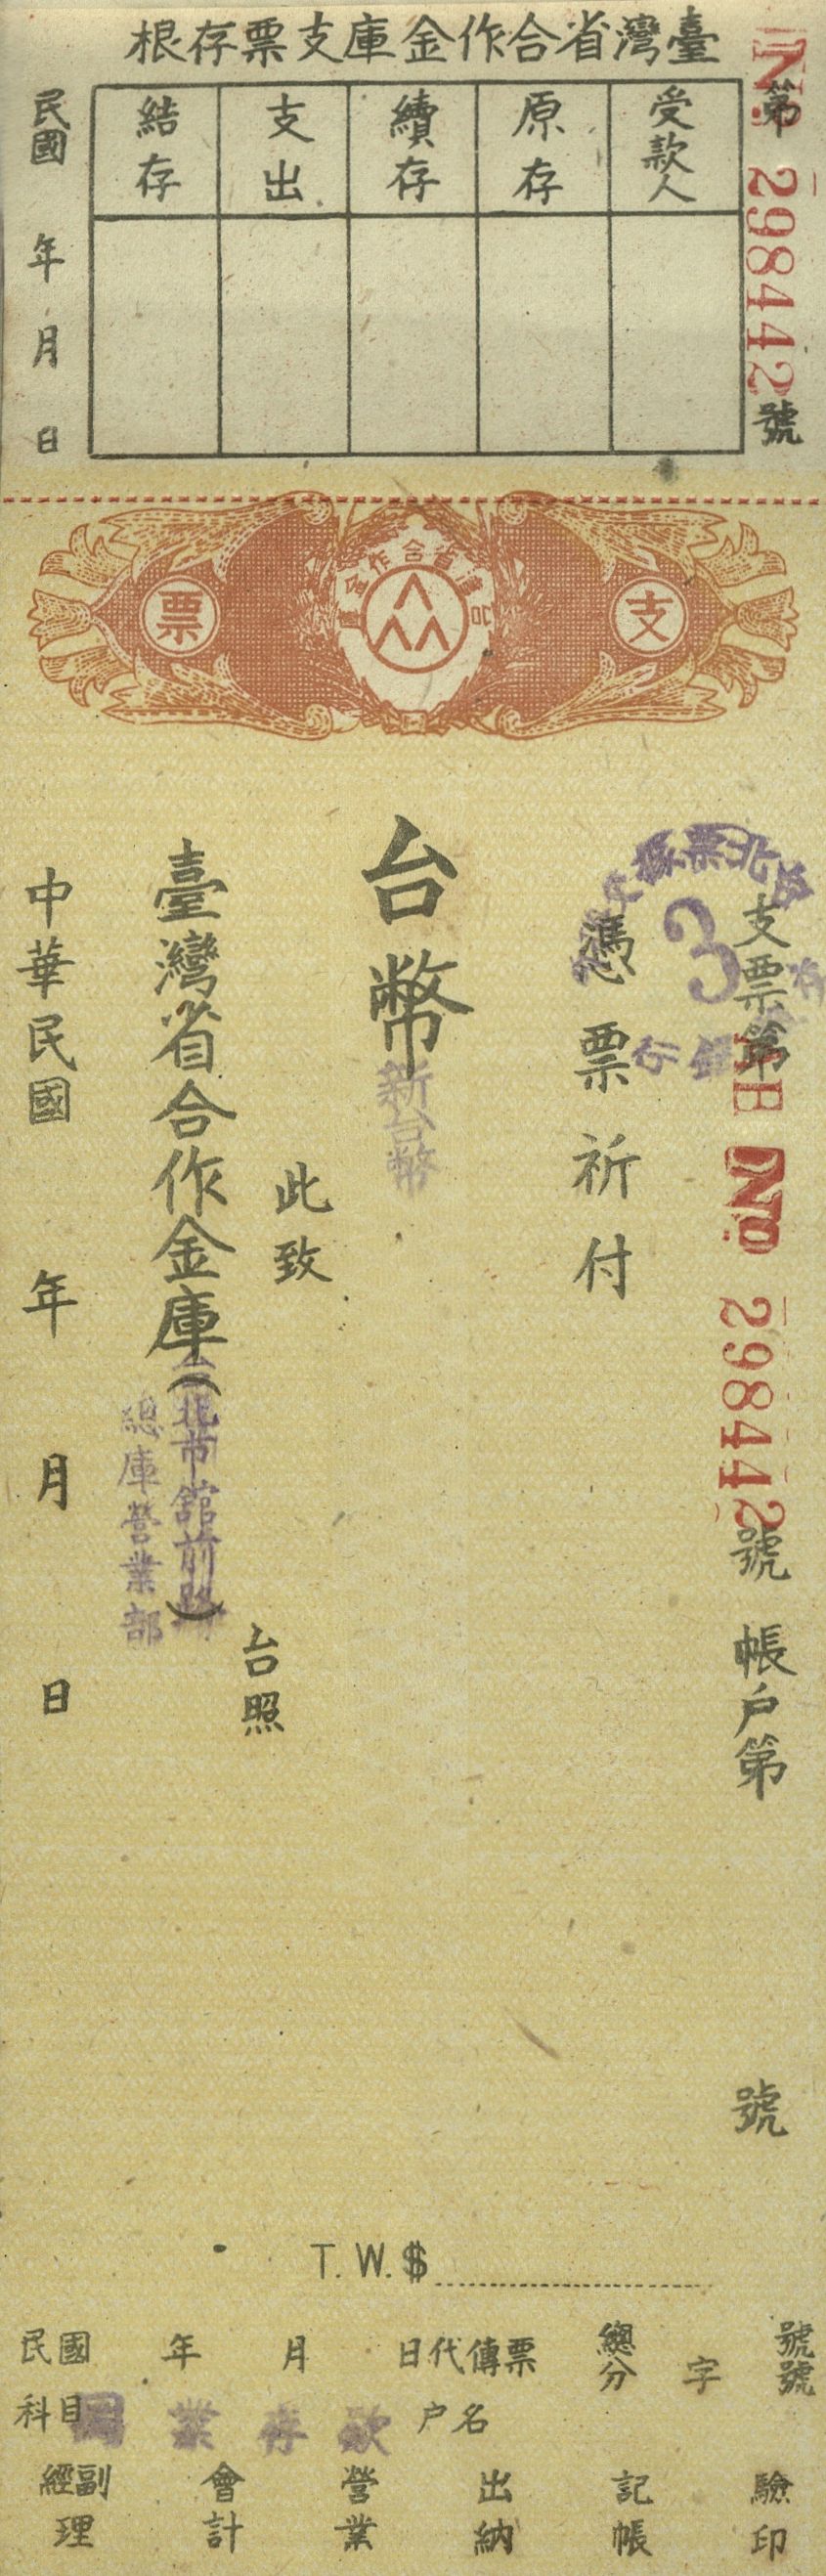 臺灣省合作金庫支票存根
第
No. 298442
號
受款人
原存
續存
支出
結存
民國 年 月 日
支
票
臺灣省合作金庫
支票第
No 298442
號 帳戶第
號
3
憑票祈付
台幣
新台幣
此致
臺灣省合作金庫(
台北市舘前路
)
總庫營業部
台照
中華民國 年 月 日
T. W. $
民國 年 月 日代傳票 總分 字 號號
科目 同業存款 戶名
經副理 會計 營業 出納 記帳 驗印